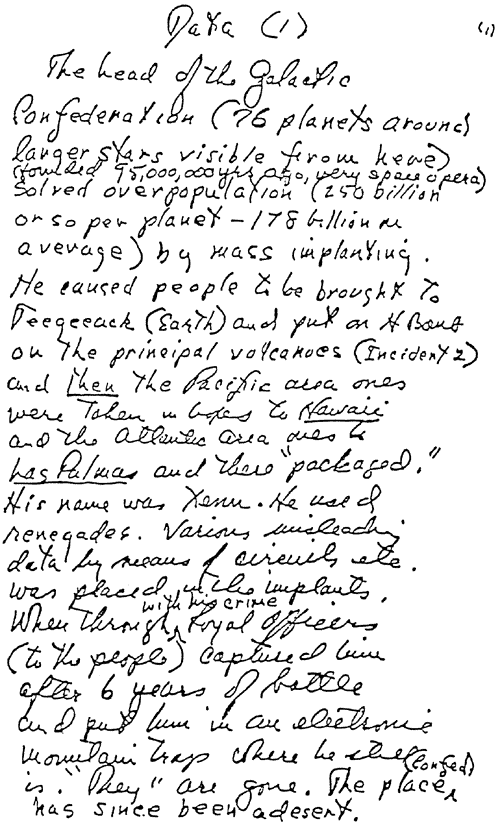 Data (1) (1)
The head of the Galactic
Confederation (76 planets around
larger stars visible from here)
(founded 95,000,000 yrs ago, very space opera)
solved overpopulation (250 billion
or so per planet – 178 billion on
average) by mass implanting.
He caused people to be brought to
Teegeeack (Earth) and put an H Bomb
on the principal volcanoes (Incident 2)
and then the Pacific area ones
were taken in boxes to Hawaii
and the Atlantic area ones to
Las Palmas and there "packaged."
His name was Xenu. He used
renegades. Various misleading
data by means of circuits etc.
was placed in the implants.
When through with his crime Loyal Officers
(to the people) captured him
after 6 years of battle
and put him in an electronic
mountain trap where he still
is. "They" are gone. The place (Confed)
has since been a desert.